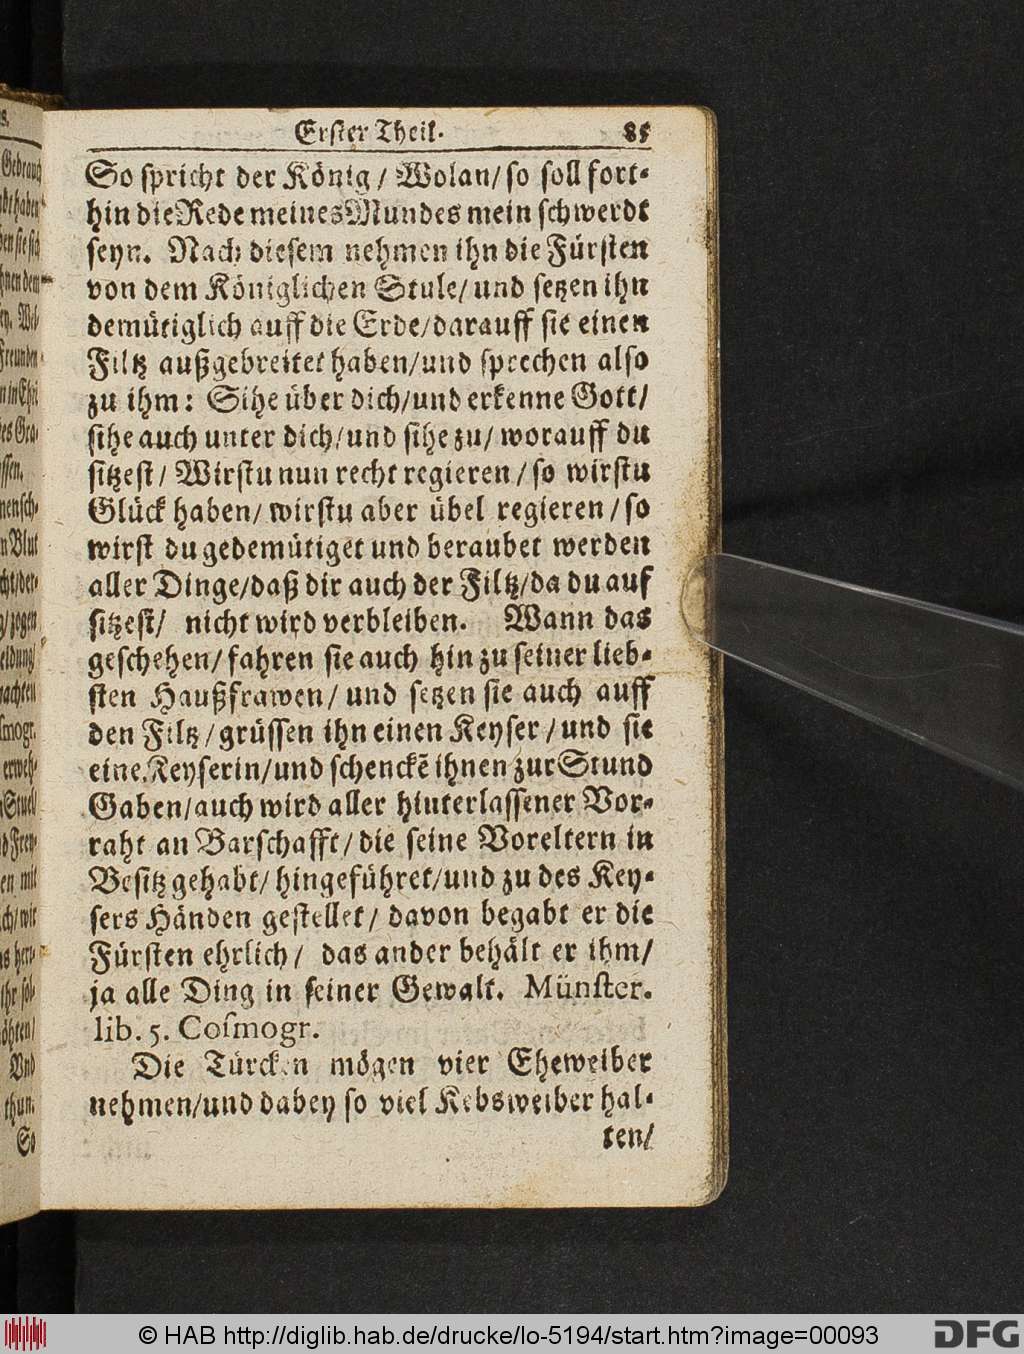 Erster Theil. 85
So spricht der König / Wolan / so soll fort-
hin die Rede meines Mundes mein schwerdt
seyn. Nach diesem nehmen ihn die Fürsten
von dem Königlichen Stule / und setzen ihn
demütiglich auff die Erde / darauff sie einen
Filtz außgebreitet haben / und sprechen also
zu ihm: Sihe über dich / und erkenne Gott /
sihe auch unter dich / und sihe zu / worauff du
sitzest / Wirstu nun recht regieren / so wirstu
Glück haben / wirstu aber übel regieren / so
wirst du gedemütiget und beraubet werden
aller Dinge / daß dir auch der Filtz / da du auf
sitzest / nicht wird verbleiben. Wann das
geschehen / fahren sie auch hin zu seiner lieb-
sten Haußfrawen / und setzen sie auch auff
den Filtz / grüssen ihn einen Keyser / und sie
eine Keyserin / und schenckẽ ihnen zur Stund
Gaben / auch wird aller hinterlassener Vor-
raht an Barschafft / die seine Voreltern in
Besitz gehabt / hingeführet / und zu des Key-
sers Händen gestellet / davon begabt er die
Fürsten ehrlich / das ander behält er ihm /
ja alle Ding in seiner Gewalt. Münster.
lib. 5. Cosmogr.
Die Türcken mögen vier Eheweiber
nehmen / und dabey so viel Kebsweiber hal-
ten /
© HAB http://diglib.hab.de/drucke/lo-5194/start.htm?image=00093
DFG